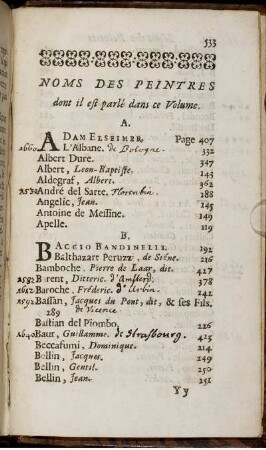 533
NOMS DES PEINTRES
dont il est parlé dans ce Volume.
A.
ADAM ELSEIMER, Page 407
1660 L'Albane. de Bologne. 332
Albert Dure. 347
Albert, Leon-Baptiste. 143
Aldegraf, Albert. 362
1530 André del Sarte. Florentin. 288
Angelic, Jean. 145
Antoine de Messine. 149
Apelle. 119
B.
BACCIO BANDINELLI. 192
Balthazart Peruzz. de Siéne. 216
Bamboche. Pierre de Laar, dit. 427
1592 Barent, Ditteric. d'Amsterd. 378
1612 Baroche, Fréderic. d'Urbin. 242
1592 Bassan, Jacques du Pont, dit, & ses Fils,
289 de Vicence
Bastian del Piombo, 226
1640 Baur, Guillamme. de Strasbourg. 415
Beccafumi, Dominique. 214
Bellin, Jacques. 249
Bellin, Gentil. 250
Bellin, Jean. 251
Yy